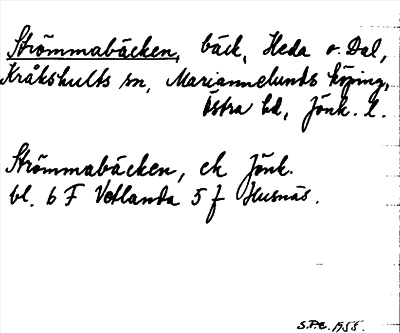 Strömmabäcken, bäck, Heda o. Dal,
Kråkshults sn, Mariannelunds köping,
Östra hd, Jönk. l.
Strömmabäcken, ek Jönk.
bl. 6 F Vetlanda 5 f Husnäs.
S.P.E. 1955.